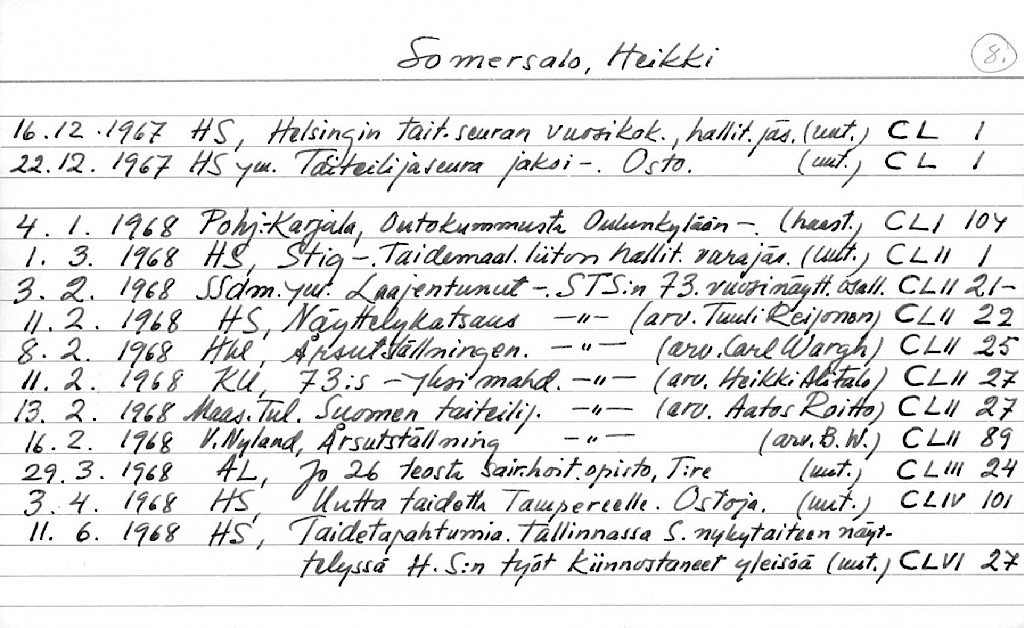 Somersalo, Heikki 8.
16.12.1967 HS, Helsingin tait.seuran vuosikok., hallit.jäs. (uut.) CL 1
22.12.1967 HS ym. Taiteilijaseura jakoi -. Osto. (uut.) CL 1
4. 1. 1968 Pohj.-Karjala, Outokummusta Oulunkylään -. (haast.) CLI 104
1. 3. 1968 HS, Stig -. Taidemaal.liiton hallit. varajäs. (uut.) CLII 1
3. 2. 1968 SSdm.ym. Laajentunut -. STS:n 73. vuosinäytt. osall. CLII 21-
11. 2. 1968 HS, Näyttelykatsaus -"- (arv. Tuuli Reijonen) CLII 22
8. 2. 1968 Hbl, Årsutställningen. -"- (arv. Carl Wargh) CLII 25
11. 2. 1968 KU, 73:s - yksi mahd. -"- (arv. Heikki Alitalo) CLII 27
13. 2. 1968 Maas.Tul. Suomen taiteilij. -"- (arv. Aatos Roitto) CLII 27
16. 2. 1968 V.Nyland, Årsutställning -"- (arv. B.W.) CLII 89
29. 3. 1968 AL, Jo 26 teosta sair.hoit.opisto, Tre (uut.) CLIII 24
3. 4. 1968 HS, Uutta taidetta Tampereelle. Ostoja. (uut.) CLIV 101
11. 6. 1968 HS, Taidetapahtumia. Tallinnassa S. nykytaiteen näyt-
telyssä H. S:n työt kiinnostaneet yleisöä (uut.) CLVI 27